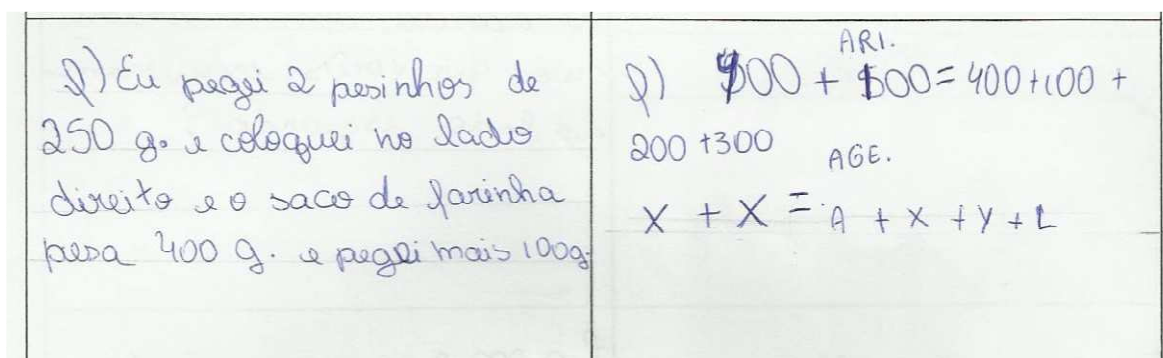 f) Eu peguei 2 pesinhos de
250 g. e coloquei no lado
direito e o saco de farinha
pesa 400 g. e peguei mais 100g.
ARI.
f) 00 + 500 = 400 + 100 +
200 + 300
AGE.
X + X = A + X + Y + L